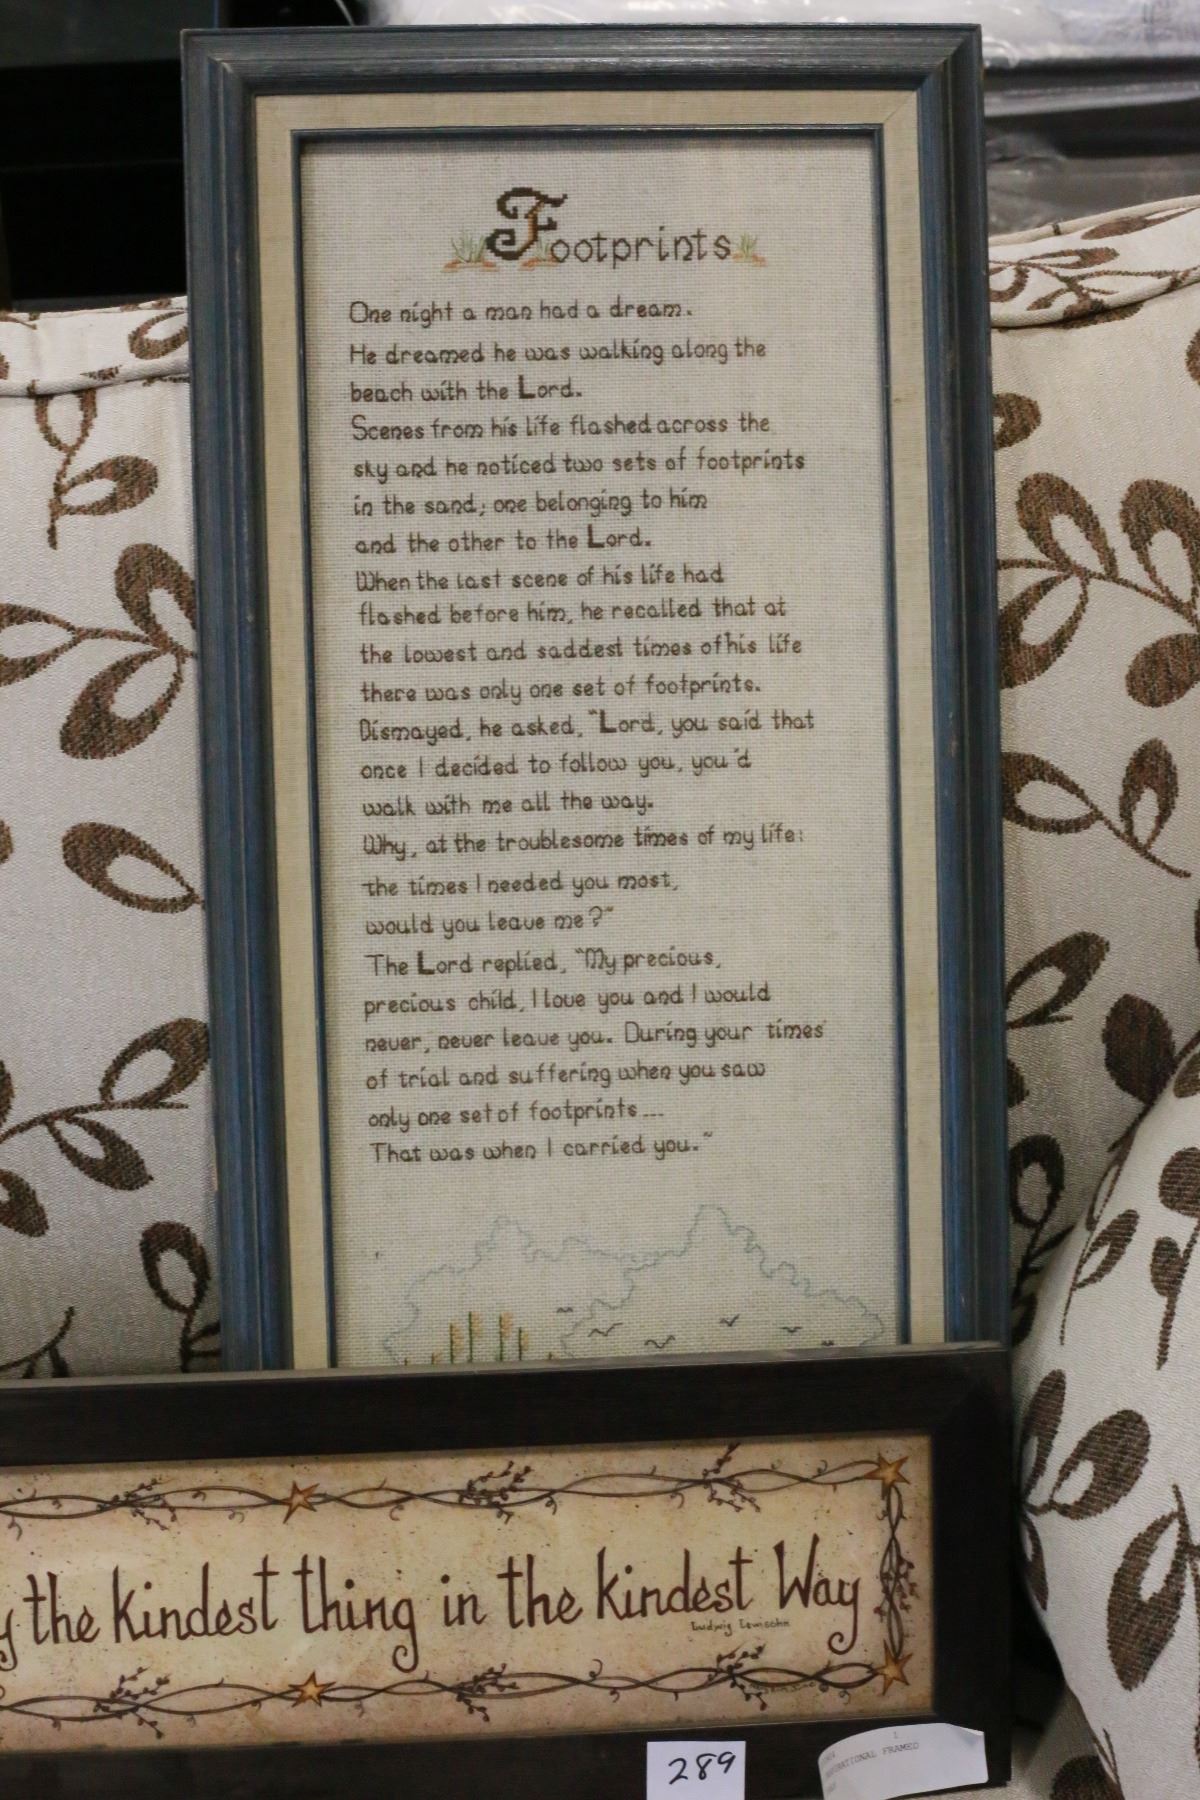 Footprints
One night a man had a dream.
He dreamed he was walking along the
beach with the Lord.
Scenes from his life flashed across the
sky and he noticed two sets of footprints
in the sand; one belonging to him
and the other to the Lord.
When the last scene of his life had
flashed before him, he recalled that at
the lowest and saddest times of his life
there was only one set of footprints.
Dismayed, he asked, "Lord, you said that
once I decided to follow you, you'd
walk with me all the way.
Why, at the troublesome times of my life:
the times I needed you most,
would you leave me?"
The Lord replied, "My precious,
precious child, I love you and I would
never, never leave you. During your times
of trial and suffering when you saw
only one set of footprints...
That was when I carried you."
the kindest thing in the kindest Way
Ludwig Lewisohn
289
FRAMED